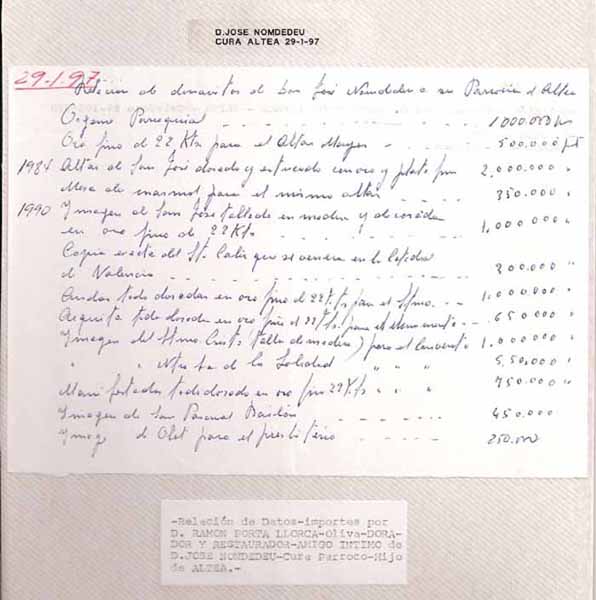 D.JOSE NOMDEDEU
CURA ALTEA 29-1-97
29.1.97 Relación de donativos de Don José Nomdedeu a su Parroquia d Altea
Organo Parroquial - - - - - - 1000.000 pts
Oro fino de 22 Kts para el Altar Mayor - - 500.000 pt
1984 Altar de San José dorado y estucado con oro y plata fin 2,000.000 "
Mesa de marmol para el mismo altar - - 350.000 "
1990 Ymagen de San José tallada en madera y decorada
en oro fino de 22 Kts - - - - - - 1,000.000 "
Copia exacta del St. Caliz que se venera en la Catedral
de Valencia - - - - - - 300.000 "
Andas todo doradas en oro fino d 22 Kts para el Stmo. - - 1,000.000 "
Arquita todo dorada en oro fino d 22 Kts. para el - - 650.000 "
Ymagen del Stmo Cristo (talla de madera) para el Convento 1,000.000 "
" " Ntra Sra de la Soledad " " " 5,50.000 "
Manifestador todo dorado en oro fino 22 Kts " " " 750.000 "
Ymagen de San Pascual Bailón 450.000
d Olot para el presbiterio - - - - 250.000
-Relación de Datos-importes por
D. RAMON PORTA LLORCA-Oliva-DORA-
DOR Y RESTAURADOR-AMIGO INTIMO de
D.JOSE NOMDEDEU-Cura Parroco-Hijo
de ALTEA.-